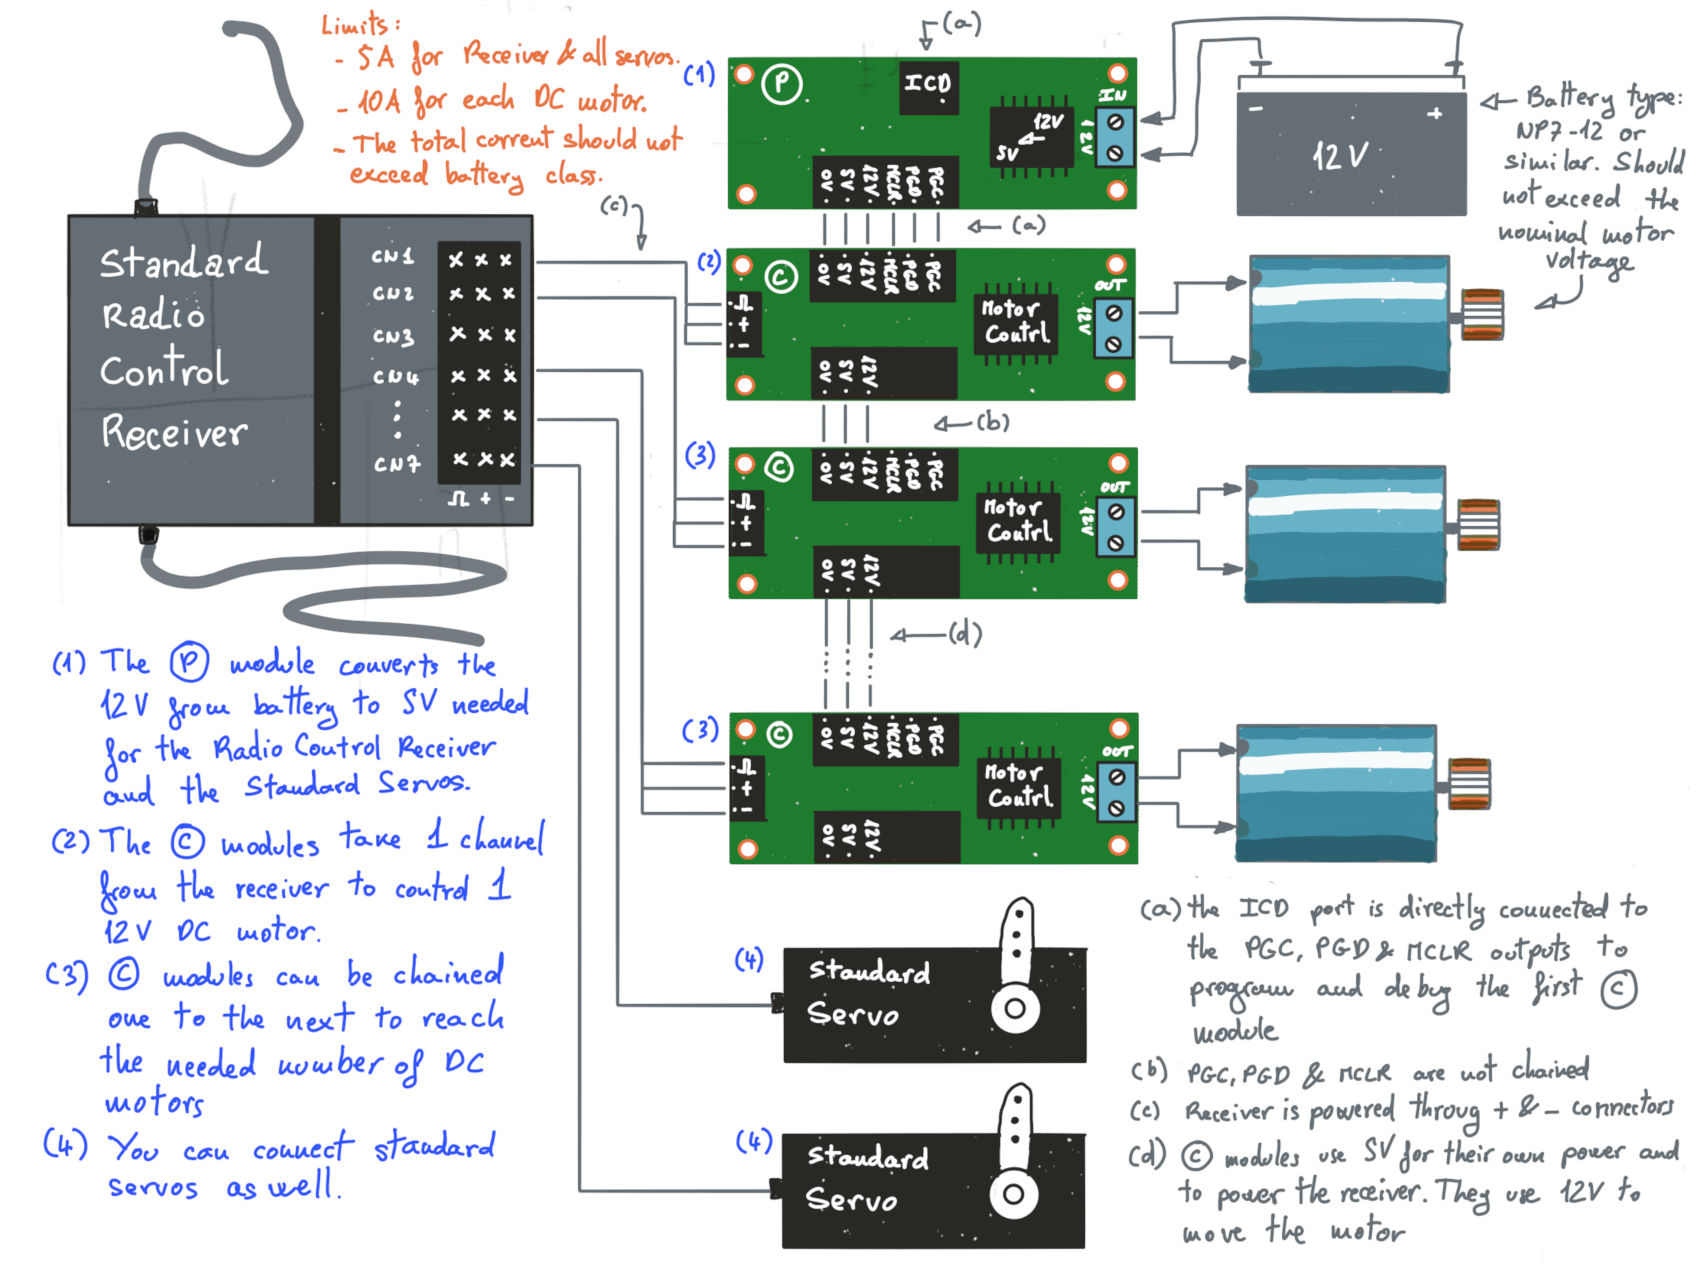 Limits:
- 5A for Receiver & all servos.
- 10A for each DC motor.
- The total corrent should not
exceed battery class.
Standard
Radio
Control
Receiver
CN1
CN2
CN3
CN4
CN7
+ -
(c)
(a)
(1)
P
ICD
12V
5V
IN
12V
0V
5V
12V
MCLR
PGD
PGC
(a)
- +
12V
Battery type:
NP7-12 or
similar. Should
not exceed the
nominal motor
voltage
(2)
C
0V
5V
12V
MCLR
PGD
PGC
+
-
Motor
Contrl.
OUT
12V
0V
5V
12V
(b)
(3)
C
0V
5V
12V
MCLR
PGD
PGC
+
-
Motor
Contrl.
OUT
12V
0V
5V
12V
(d)
(3)
C
0V
5V
12V
MCLR
PGD
PGC
+
-
Motor
Contrl.
OUT
12V
0V
5V
12V
(4)
Standard
Servo
(4)
Standard
Servo
(1) The P module converts the
12V from battery to 5V needed
for the Radio Control Receiver
and the Standard Servos.
(2) The C modules take 1 channel
from the receiver to control 1
12V DC motor.
(3) C modules can be chained
one to the next to reach
the needed number of DC
motors
(4) You can connect standard
servos as well.
(a) the ICD port is directly connected to
the PGC, PGD & MCLR outputs to
program and debug the first C
module
(b) PGC, PGD & MCLR are not chained
(c) Receiver is powered throug + & - connectors
(d) C modules use 5V for their own power and
to power the receiver. They use 12V to
move the motor